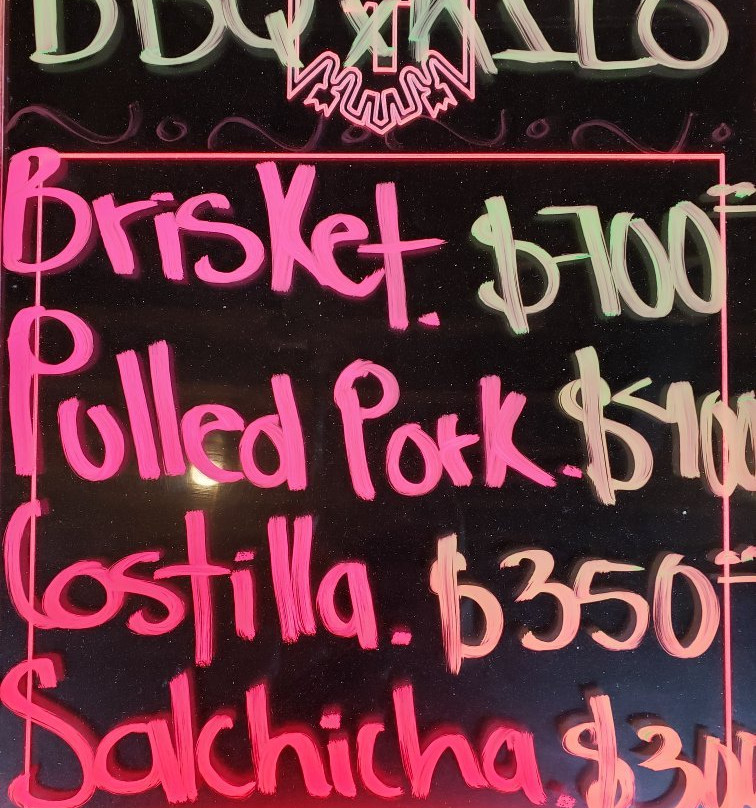 BBQ X KILO
Brisket. $700=
Pulled Pork. $400
Costilla. $350=
Salchicha. $300